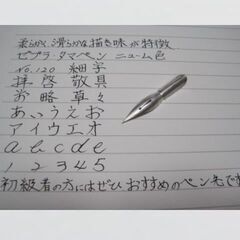 柔らかく滑らかな描き味が特徴
ゼブラ・タマペン ニューム色
No.120 細字
拝啓 敬具
前略 草々
あいうえお
アイウエオ
abcde
12345
初級者の方にはぜひおすすめのペン先です